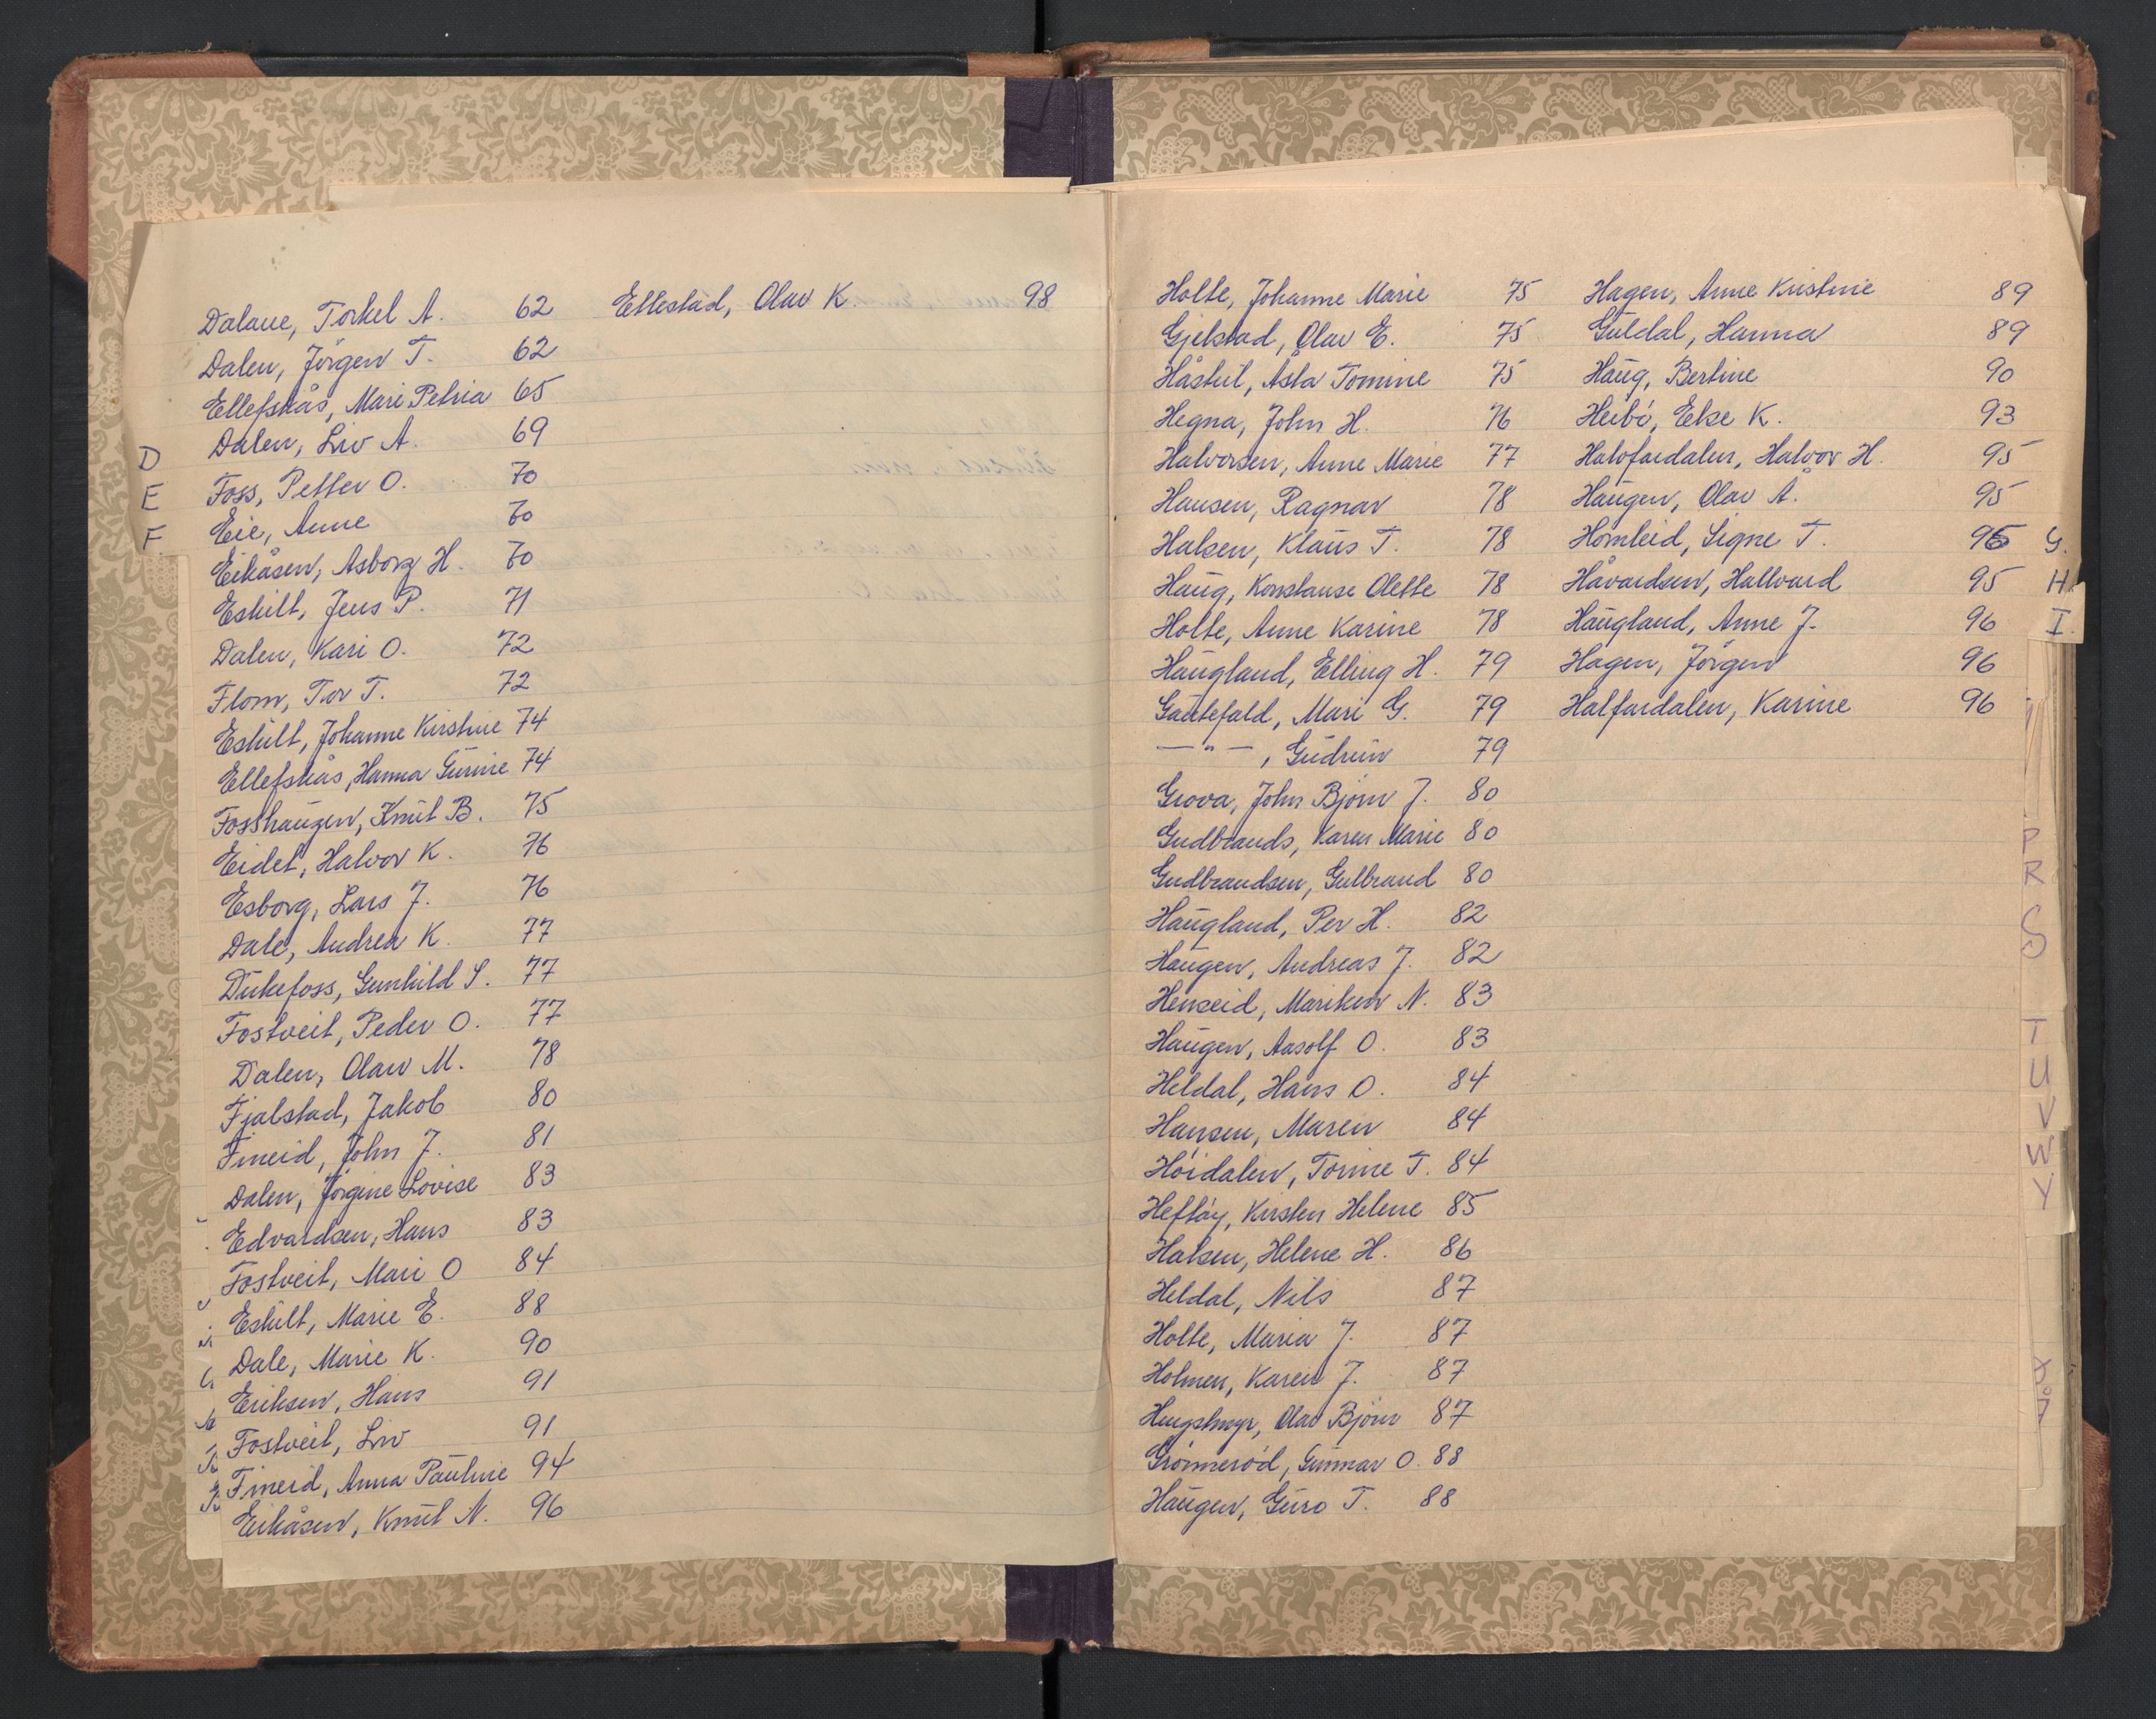 Dalane, Torkel A. 62
Dalen, Jörgen T. 62
Ellefsaas, Mari Petria 65
Dalen, Liv A. 69
Foss, Petter O. 70
Eie, Anne 70
Eikåsen, Asborg H. 70
Eskilt, Jens P. 71
Dalen, Kari O. 72
Flom, Tor T. 72
Eskilt, Johanne Kirstine 74
Ellefskås, Hanna Gurine 74
Fosshaugen, Knut B. 75
Eidet, Halvor K. 76
Esborg, Lars J. 76
Dale, Andrea K. 77
Dukefoss, Gunhild S. 77
Fostveit, Peder O. 77
Dalen, Olav M. 78
Fjalstad, Jakob 80
Fineid, John J. 81
Dalen, Jörgine Lovise 83
Edvardsen, Hans 83
Fostveit, Mari O 84
Eskilt, Marie E. 88
Dale, Marie K. 90
Eriksen, Hans 91
Fostveit, Liv 91
Fineid, Anna Pauline 94
Eikåsen, Knut N. 96
Ettestad, Olav K. 98
D
E
F.
Holte, Johanne Marie 75
Gjelstad, Olav E. 75
Håstul, Åsta Tomine 75
Hegna, John H. 76
Halvorsen, Anne Marie 77
Hansen, Ragnar 78
Halsen, Klaus T. 78
Haug, Konstanse Olette 78
Holte, Anne Karine 78
Haugland, Elling H. 79
Gautefald, Mari G. 79
— " — , Gudrun 79
Grova, John Björn J. 80
Gudbrands, Karen Marie 80
Gudbrandsen, Gulbrand 80
Haugland, Per H. 82
Haugen, Andreas J. 82
Henseid, Mariken N. 83
Haugen, Aasolf O. 83
Heldal, Hans O. 84
Hansen, Maren 84
Höidalen, Torine T. 84
Heftöy, Kirsten Helene 85
Halsen, Helene H. 86
Heldal, Nils 87
Holte, Maria J. 87
Holmen, Karen J. 87
Haugstmyr, Olav Björn 87
Grönneröd, Gunnar O. 88
Haugen, Guro T. 88
Hagen, Anne Kristine 89
Guldal, Hanna 89
Haug, Bertine 90
Heibö, Eelse K. 93
Halvfardalen, Halvor H. 95
Haugen, Olav Å. 95
Homleid, Signe T. 95
Håvardsen, Hallvard 95
Haugland, Anne J. 96
Hagen, Jörgen 96
Halfardalen, Karine 96
G.
H.
I.
P
R
S
T
U
V
W
Y